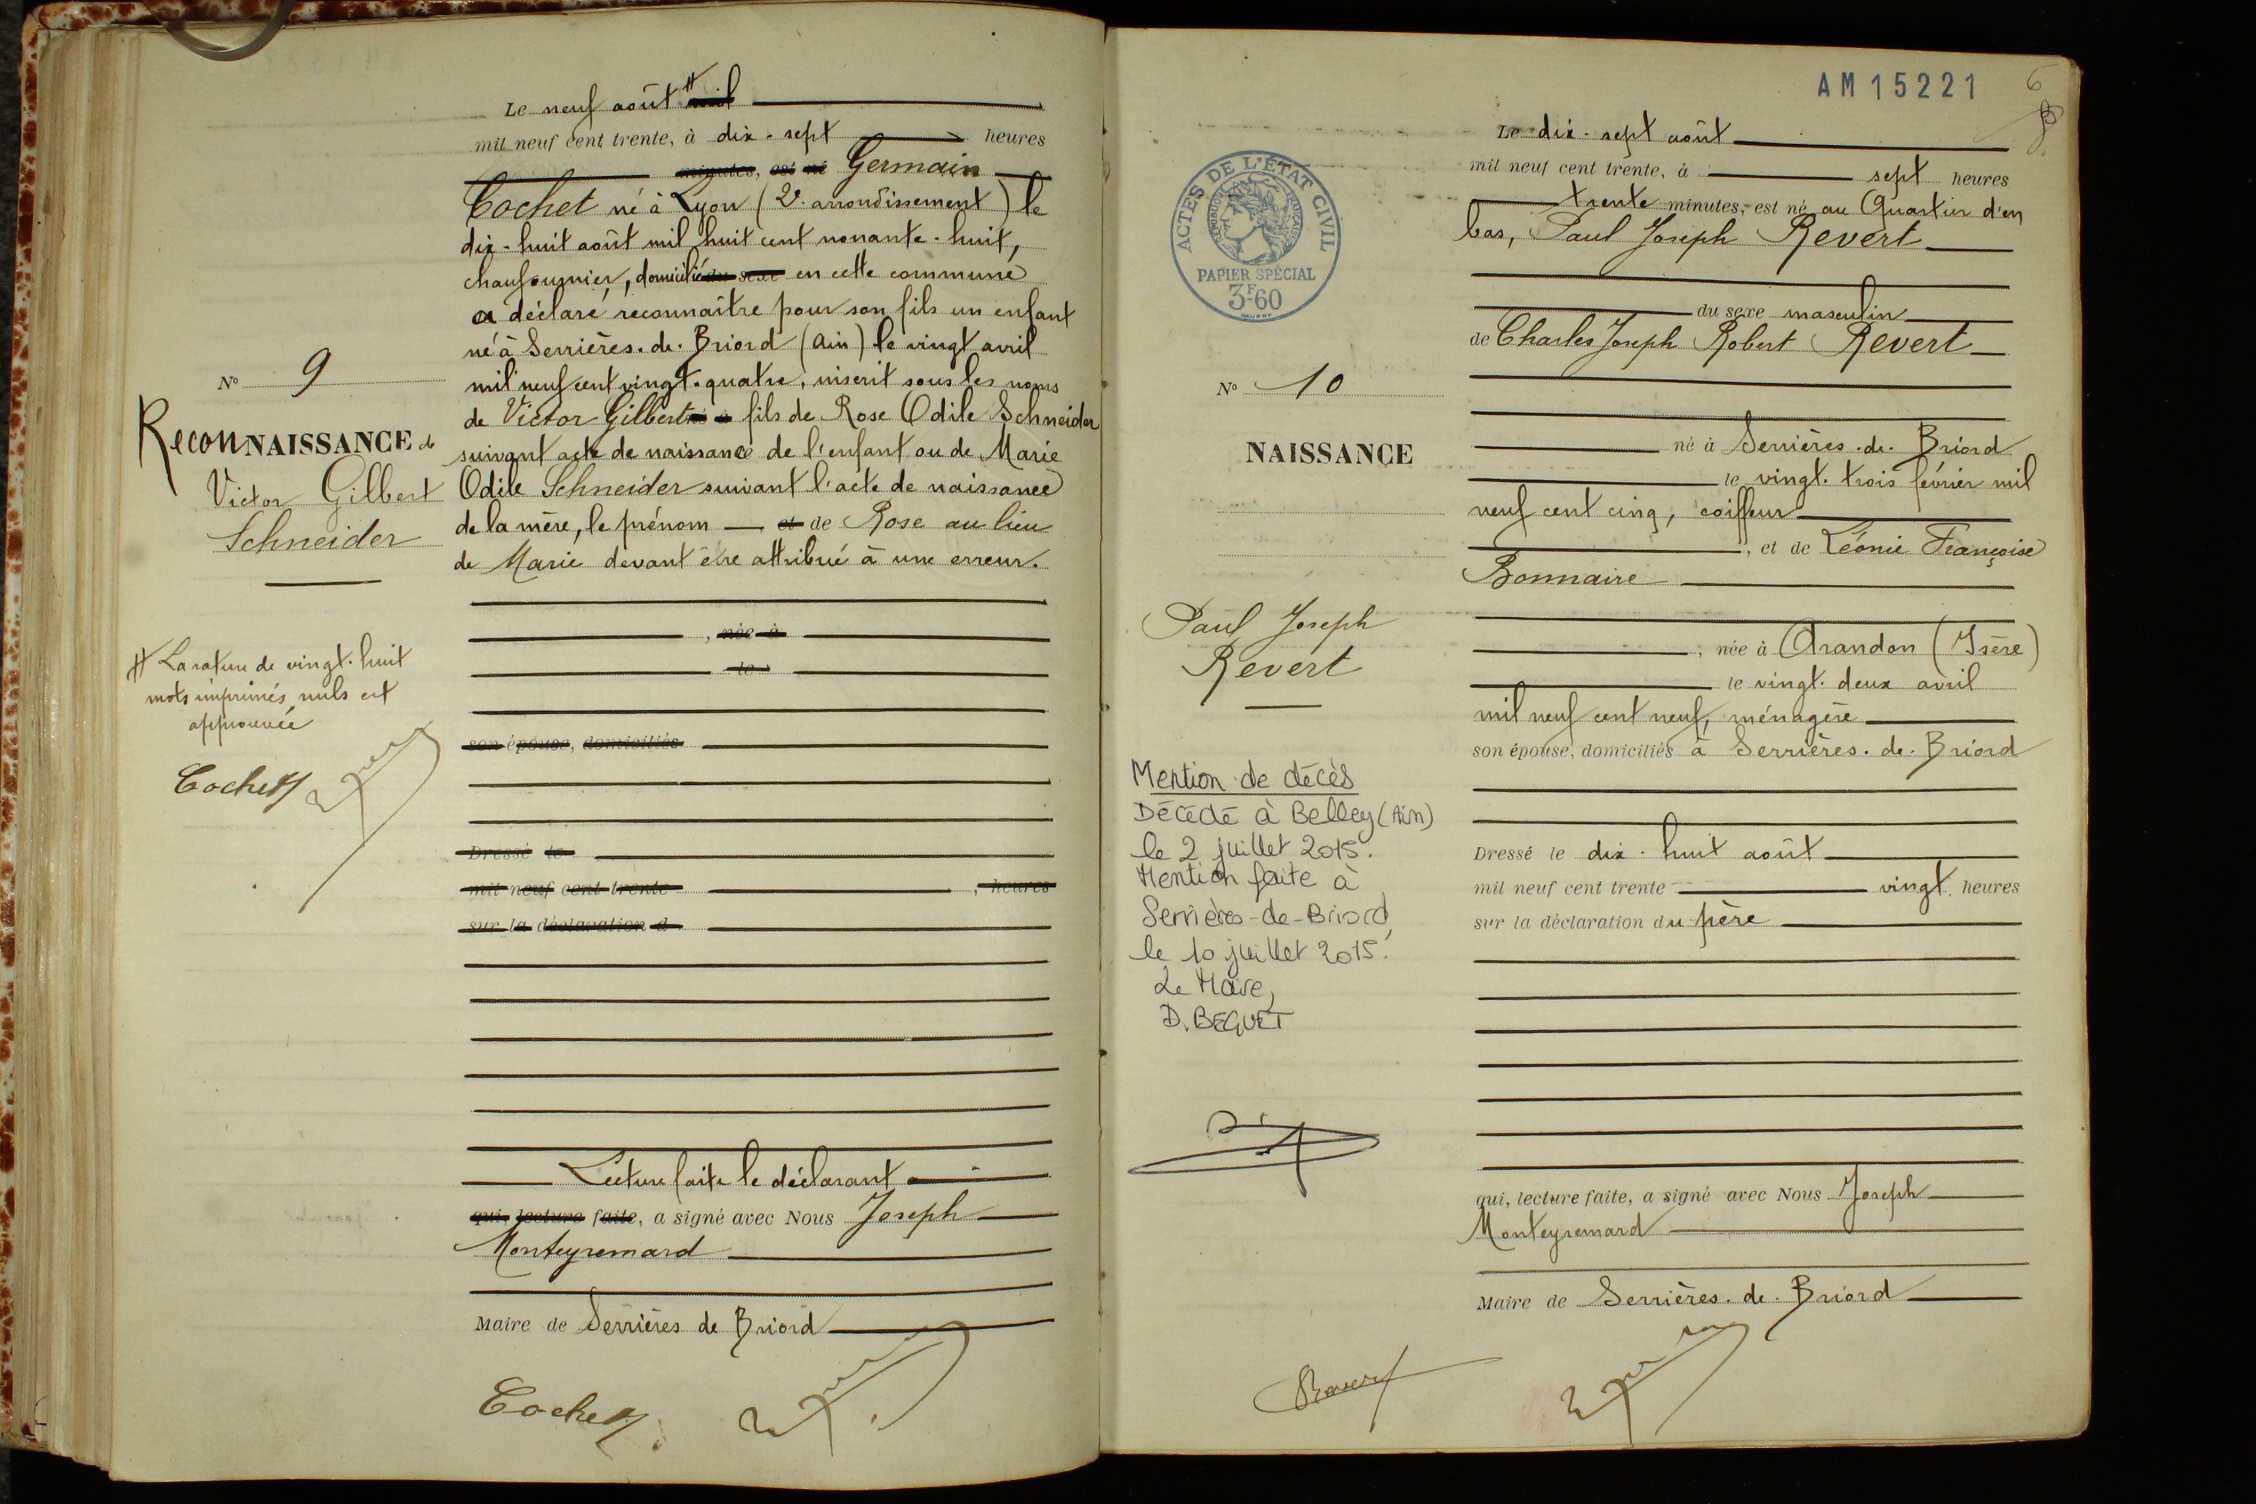 Le neuf août # mil
mil neuf cent trente, à dix-sept heures
minutes, est né Germain
Cochet né à Lyon (2e arrondissement) le
dix-huit août mil huit cent nonante-huit,
chaufournier, domicilié du sexe en cette commune
a déclaré reconnaître pour son fils un enfant
né à Serrières-de-Briord (Ain) le vingt avril
mil neuf cent vingt-quatre, inscrit sous les noms
de Victor Gilbert né à fils de Rose Odile Schneider
suivant acte de naissance de l'enfant ou de Marie
Odile Schneider suivant l'acte de naissance
de la mère, le prénom et de Rose au lieu
de Marie devant être attribué à une erreur.
, née à
le
son épouse, domiciliés
Dressé le
mil neuf cent trente , heures
sur la déclaration d
Lecture faite le déclarant
qui, lecture faite, a signé avec Nous Joseph
Monteyremard
Maire de Serrières de Briord
Cochet
N° 9
ReconNAISSANCE de
Victor Gilbert
Schneider
# La rature de vingt-huit
mots imprimés nuls est
approuvée
Cochet
AM 15221
6
Le dix-sept août
mil neuf cent trente, à sept heures
trente minutes, est né au Quartier d'en
bas, Paul Joseph Revert
du sexe masculin
de Charles Joseph Robert Revert
né à Serrières-de-Briord
le vingt-trois février mil
neuf cent cinq, coiffeur
, et de Léonie Françoise
Bonnaire
, née à Arandon (Isère)
le vingt-deux avril
mil neuf cent neuf, ménagère
son épouse, domiciliés à Serrières-de-Briord
Dressé le dix-huit août
mil neuf cent trente vingt heures
sur la déclaration du père
qui, lecture faite, a signé avec Nous Joseph
Monteyremard
Maire de Serrières-de-Briord
Revert
ACTES DE L'ÉTAT CIVIL
RÉPUBLIQUE FRANÇAISE
PAPIER SPÉCIAL
3F60
N° 10
NAISSANCE
Paul Joseph
Revert
Mention de décès
Décédé à Belley (Ain)
le 2 juillet 2015.
Mention faite à
Serrières-de-Briord,
le 10 juillet 2015.
Le Maire,
D. BEGUET